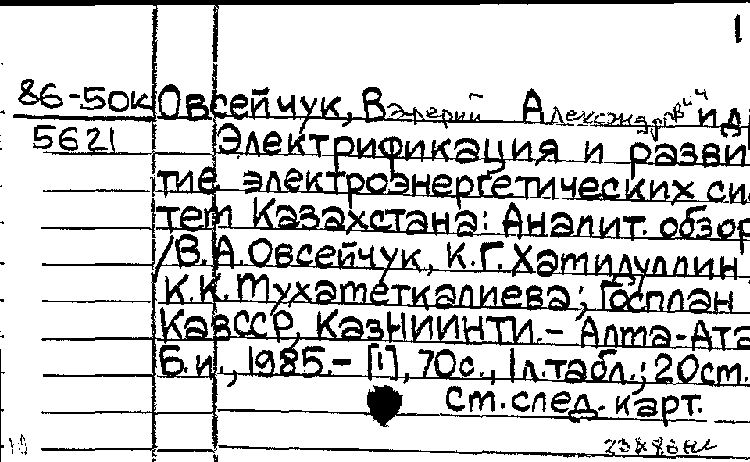 1
86-50к Овсейчук, Валерий Александрович и др
5621 Электрификация и разви
тие электроэнергетических сис
тем Казахстана: Аналит. обзор
/В.А.Овсейчук, К.Г.Хамидуллин,
К.К.Мухаметкалиева; Госплан
КазССР, КазНИИНТИ.- Алма-Ата
Б.и., 1985.- [1], 70с., 1л.табл.; 20см.
См.след.карт.